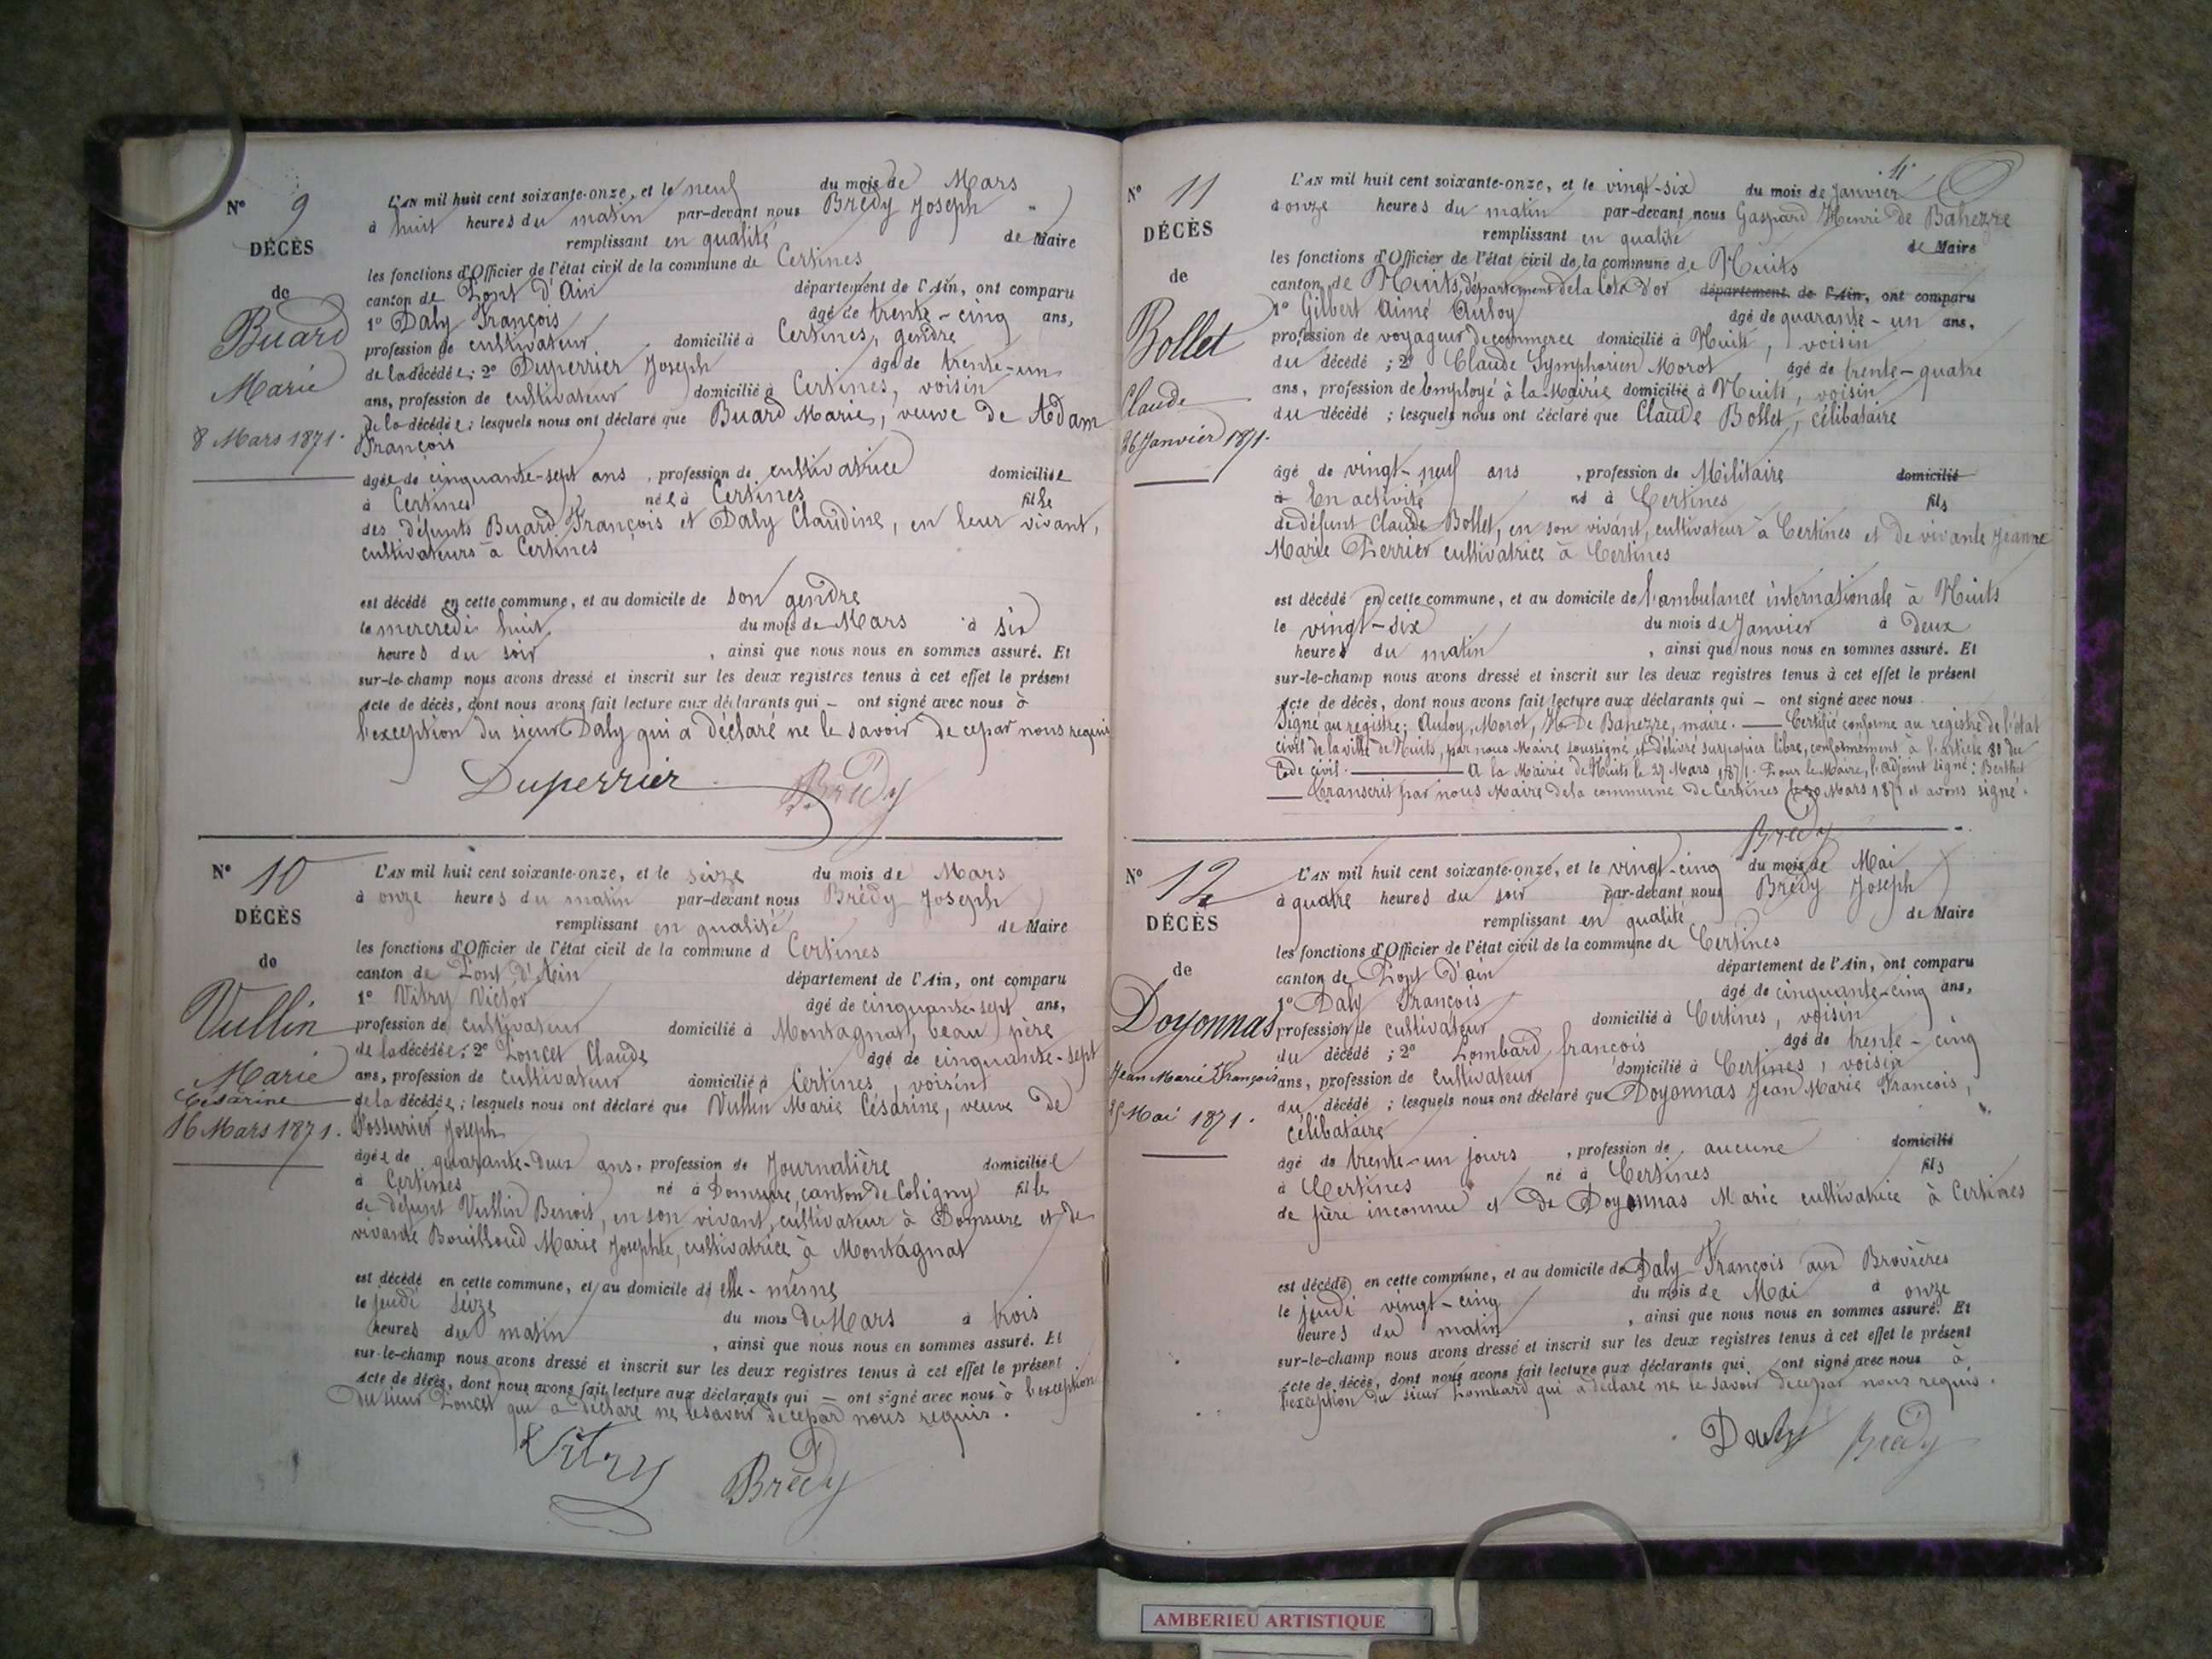 N° 9
DÉCÈS
de
Buard
Marie
8 Mars 1871.
L'AN mil huit cent soixante-onze, et le neuf du mois de Mars
à huit heures du matin par-devant nous Brédy Joseph
remplissant en qualité de Maire
les fonctions d'Officier de l'état civil de la commune de Certines
canton de Pont d'Ain département de l'Ain, ont comparu
1° Daly François âgé de trente-cinq ans,
profession de cultivateur domicilié à Certines, gendre
de la décédée; 2° Duperrier Joseph âgé de trente-un
ans, profession de cultivateur domicilié à Certines, voisin
de la décédée; lesquels nous ont déclaré que Buard Marie, veuve de Adam
François
âgée de cinquante-sept ans, profession de cultivatrice domiciliée
à Certines née à Certines fille
des défunts Buard François et Daly Claudine, en leur vivant,
cultivateurs à Certines
est décédé en cette commune, et au domicile de son gendre
le mercredi huit du mois de Mars à six
heures du soir, ainsi que nous nous en sommes assuré. Et
sur-le-champ nous avons dressé et inscrit sur les deux registres tenus à cet effet le présent
acte de décès, dont nous avons fait lecture aux déclarants qui — ont signé avec nous à
l'exception du sieur Daly qui a déclaré ne le savoir de ce par nous requis
Duperrier Brédy
N° 10
DÉCÈS
de
Vullin
Marie
Césarine
16 Mars 1871.
L'AN mil huit cent soixante-onze, et le seize du mois de Mars
à onze heures du matin par-devant nous Brédy Joseph
remplissant en qualité de Maire
les fonctions d'Officier de l'état civil de la commune d Certines
canton de Pont d'Ain département de l'Ain, ont comparu
1° Vitry Victor âgé de cinquante-sept ans,
profession de cultivateur domicilié à Montagnat, beau père
de la décédée; 2° Poncet Claude âgé de cinquante-sept
ans, profession de cultivateur domicilié à Certines, voisin
de la décédée; lesquels nous ont déclaré que Vullin Marie Césarine, veuve de
Joseph
âgée de quarante-deux ans, profession de Journalière domiciliée
à Certines né à Domsure, canton de Coligny fille
de défunt Vullin Benoit, en son vivant, cultivateur à Domsure et de
vivante Bouilloud Marie Josephte, cultivatrice à Montagnat
est décédé en cette commune, et au domicile d' elle-même
le jeudi seize du mois de Mars à trois
heures du matin, ainsi que nous nous en sommes assuré. Et
sur-le-champ nous avons dressé et inscrit sur les deux registres tenus à cet effet le présent
acte de décès, dont nous avons fait lecture aux déclarants qui — ont signé avec nous à l'exception
du sieur Poncet qui a déclaré ne le savoir de ce par nous requis.
Vitry Brédy
11
N° 11
DÉCÈS
de
Bollet
Claude
26 Janvier 1871.
L'AN mil huit cent soixante-onze, et le vingt-six du mois de Janvier
à onze heures du matin par-devant nous Gaspard Henri de Bahezre
remplissant en qualité de Maire
les fonctions d'Officier de l'état civil de la commune de Nuits
canton de Nuits, département de la Côte d'or département de l'Ain, ont comparu
1° Gilbert Aimé Auloy âgé de quarante-un ans,
profession de voyageur de commerce domicilié à Nuits, voisin
du décédé; 2° Claude Symphorien Morot âgé de trente-quatre
ans, profession de Employé à la Mairie domicilié à Nuits, voisin
du décédé; lesquels nous ont déclaré que Claude Bollet, célibataire
âgé de vingt-neuf ans, profession de Militaire domicilié
à En activité né à Certines fils
de défunt Claude Bollet, en son vivant, cultivateur à Certines et de vivante Jeanne
Marie Perrier cultivatrice à Certines
est décédé en cette commune, et au domicile de l'ambulance internationale à Nuits
le vingt-six du mois de Janvier à deux
heures du matin, ainsi que nous nous en sommes assuré. Et
sur-le-champ nous avons dressé et inscrit sur les deux registres tenus à cet effet le présent
acte de décès, dont nous avons fait lecture aux déclarants qui — ont signé avec nous
Signé au registre: Auloy, Morot, H. De Bahezre, maire. — Certifié conforme au registre de l'état
civil de la ville de Nuits, par nous Maire soussigné et délivré sur papier libre, conformément à l'article 80 du
Code civil. — A la Mairie de Nuits le 27 Mars 1871. Pour le Maire, l'adjoint signé: Berthet
— Transcrit par nous Maire de la commune de Certines le 30 Mars 1871 et avons signé.
Brédy
N° 12
DÉCÈS
de
Doyonnas
Jean Marie François
25 Mai 1871.
L'AN mil huit cent soixante-onze, et le vingt-cinq du mois de Mai
à quatre heures du soir par-devant nous Brédy Joseph
remplissant en qualité de Maire
les fonctions d'Officier de l'état civil de la commune de Certines
canton de Pont d'ain département de l'Ain, ont comparu
1° Daly François âgé de cinquante-cinq ans,
profession de cultivateur domicilié à Certines, voisin
du décédé; 2° Lombard françois âgé de trente-cinq
ans, profession de cultivateur domicilié à Certines, voisin
du décédé; lesquels nous ont déclaré que Doyonnas Jean Marie François,
célibataire
âgé de trente-un jours, profession de aucune domicilié
à Certines né à Certines fils
de père inconnu et de Doyonnas Marie cultivatrice à Certines
est décédé en cette commune, et au domicile de Daly François aux Brovières
le jeudi vingt-cinq du mois de Mai à onze
heures du matin, ainsi que nous nous en sommes assuré. Et
sur-le-champ nous avons dressé et inscrit sur les deux registres tenus à cet effet le présent
acte de décès, dont nous avons fait lecture aux déclarants qui ont signé avec nous à
l'exception du sieur Lombard qui a déclaré ne le savoir de ce par nous requis.
Daly Brédy
AMBERIEU ARTISTIQUE